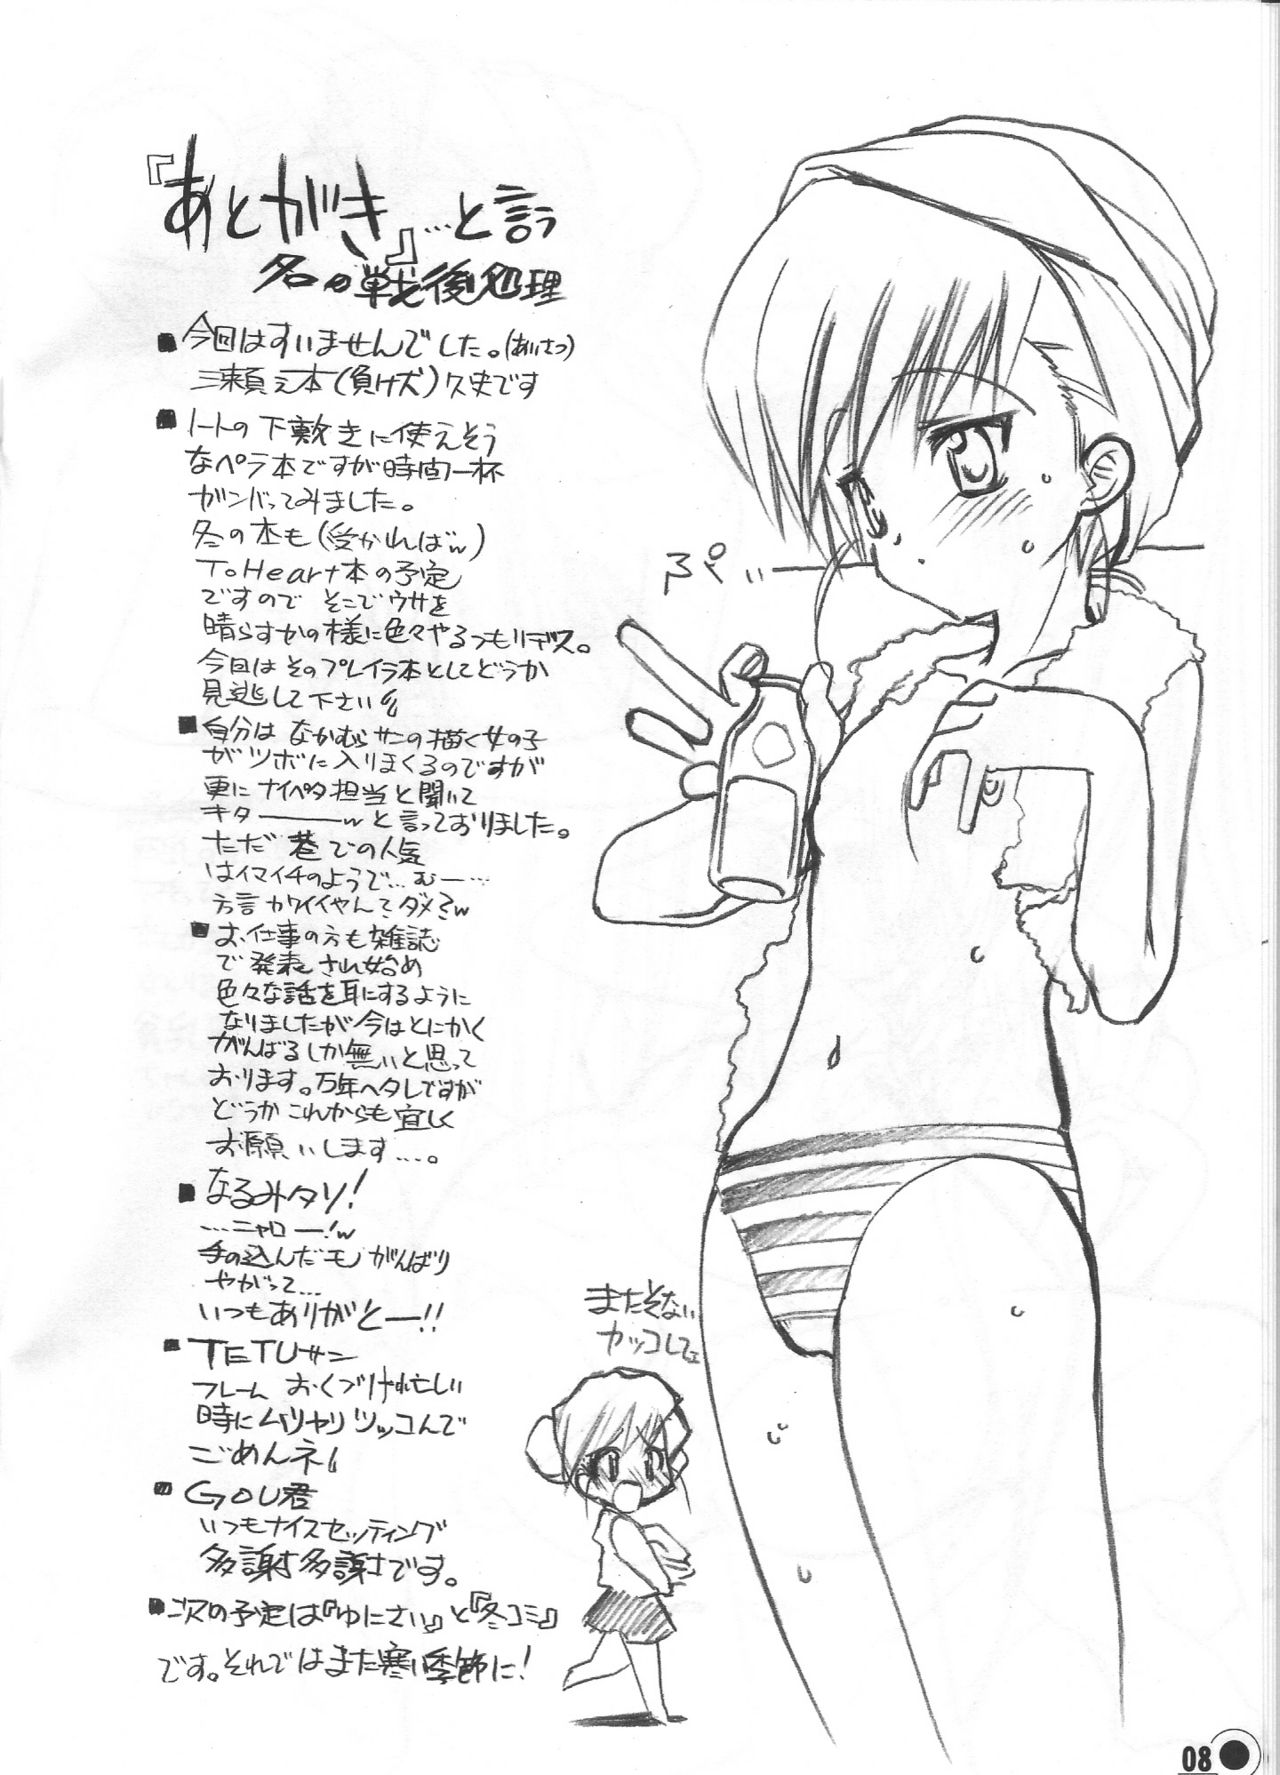 『あとがき』…と言う
名の戦後処理
■今回はすいませんでした。(あいさつ)
三瀬元本(負け犬)久史です
■ノートの下敷きに使えそう
なペラ本ですが時間一杯
ガンバってみました。
冬の本も(受かればw)
ToHeart本の予定
ですので そこでウサを
晴らすかの様に色々やるつもりデス。
今日はそのプレイラ本としてどうか
見逃して下さい
■自分は なかむらサンの描く女の子
がツボに入りまくるのですが
更に ナイペタ担当と聞いて
キターーーーwと言っておりました。
ただ 巷での人気
はイマイチのようで…むー…
方言カワイイやんてダメ?w
■お仕事の方も雑誌
で発表され始め
色々な話を耳にするように
なりましたが今はとにかく
がんばるしか無いと思って
おります。万年ヘタレですが
どうかこれからも宜しく
お願いします…。
■なるみタソ!
…ニャロー!w
手の込んだモノがんばり
やがって…
いつもありがとー!!
■TETUサン
フレーム おくづけ忙しい
時にムリヤリツッコんで
ごめんネ
■GOU君
いつもナイスセッティング
多謝多謝です。
■次の予定は『ゆにさい』と『冬コミ』
です。それではまた寒い季節に!
ぷぐい
またそんな
カッコして
08